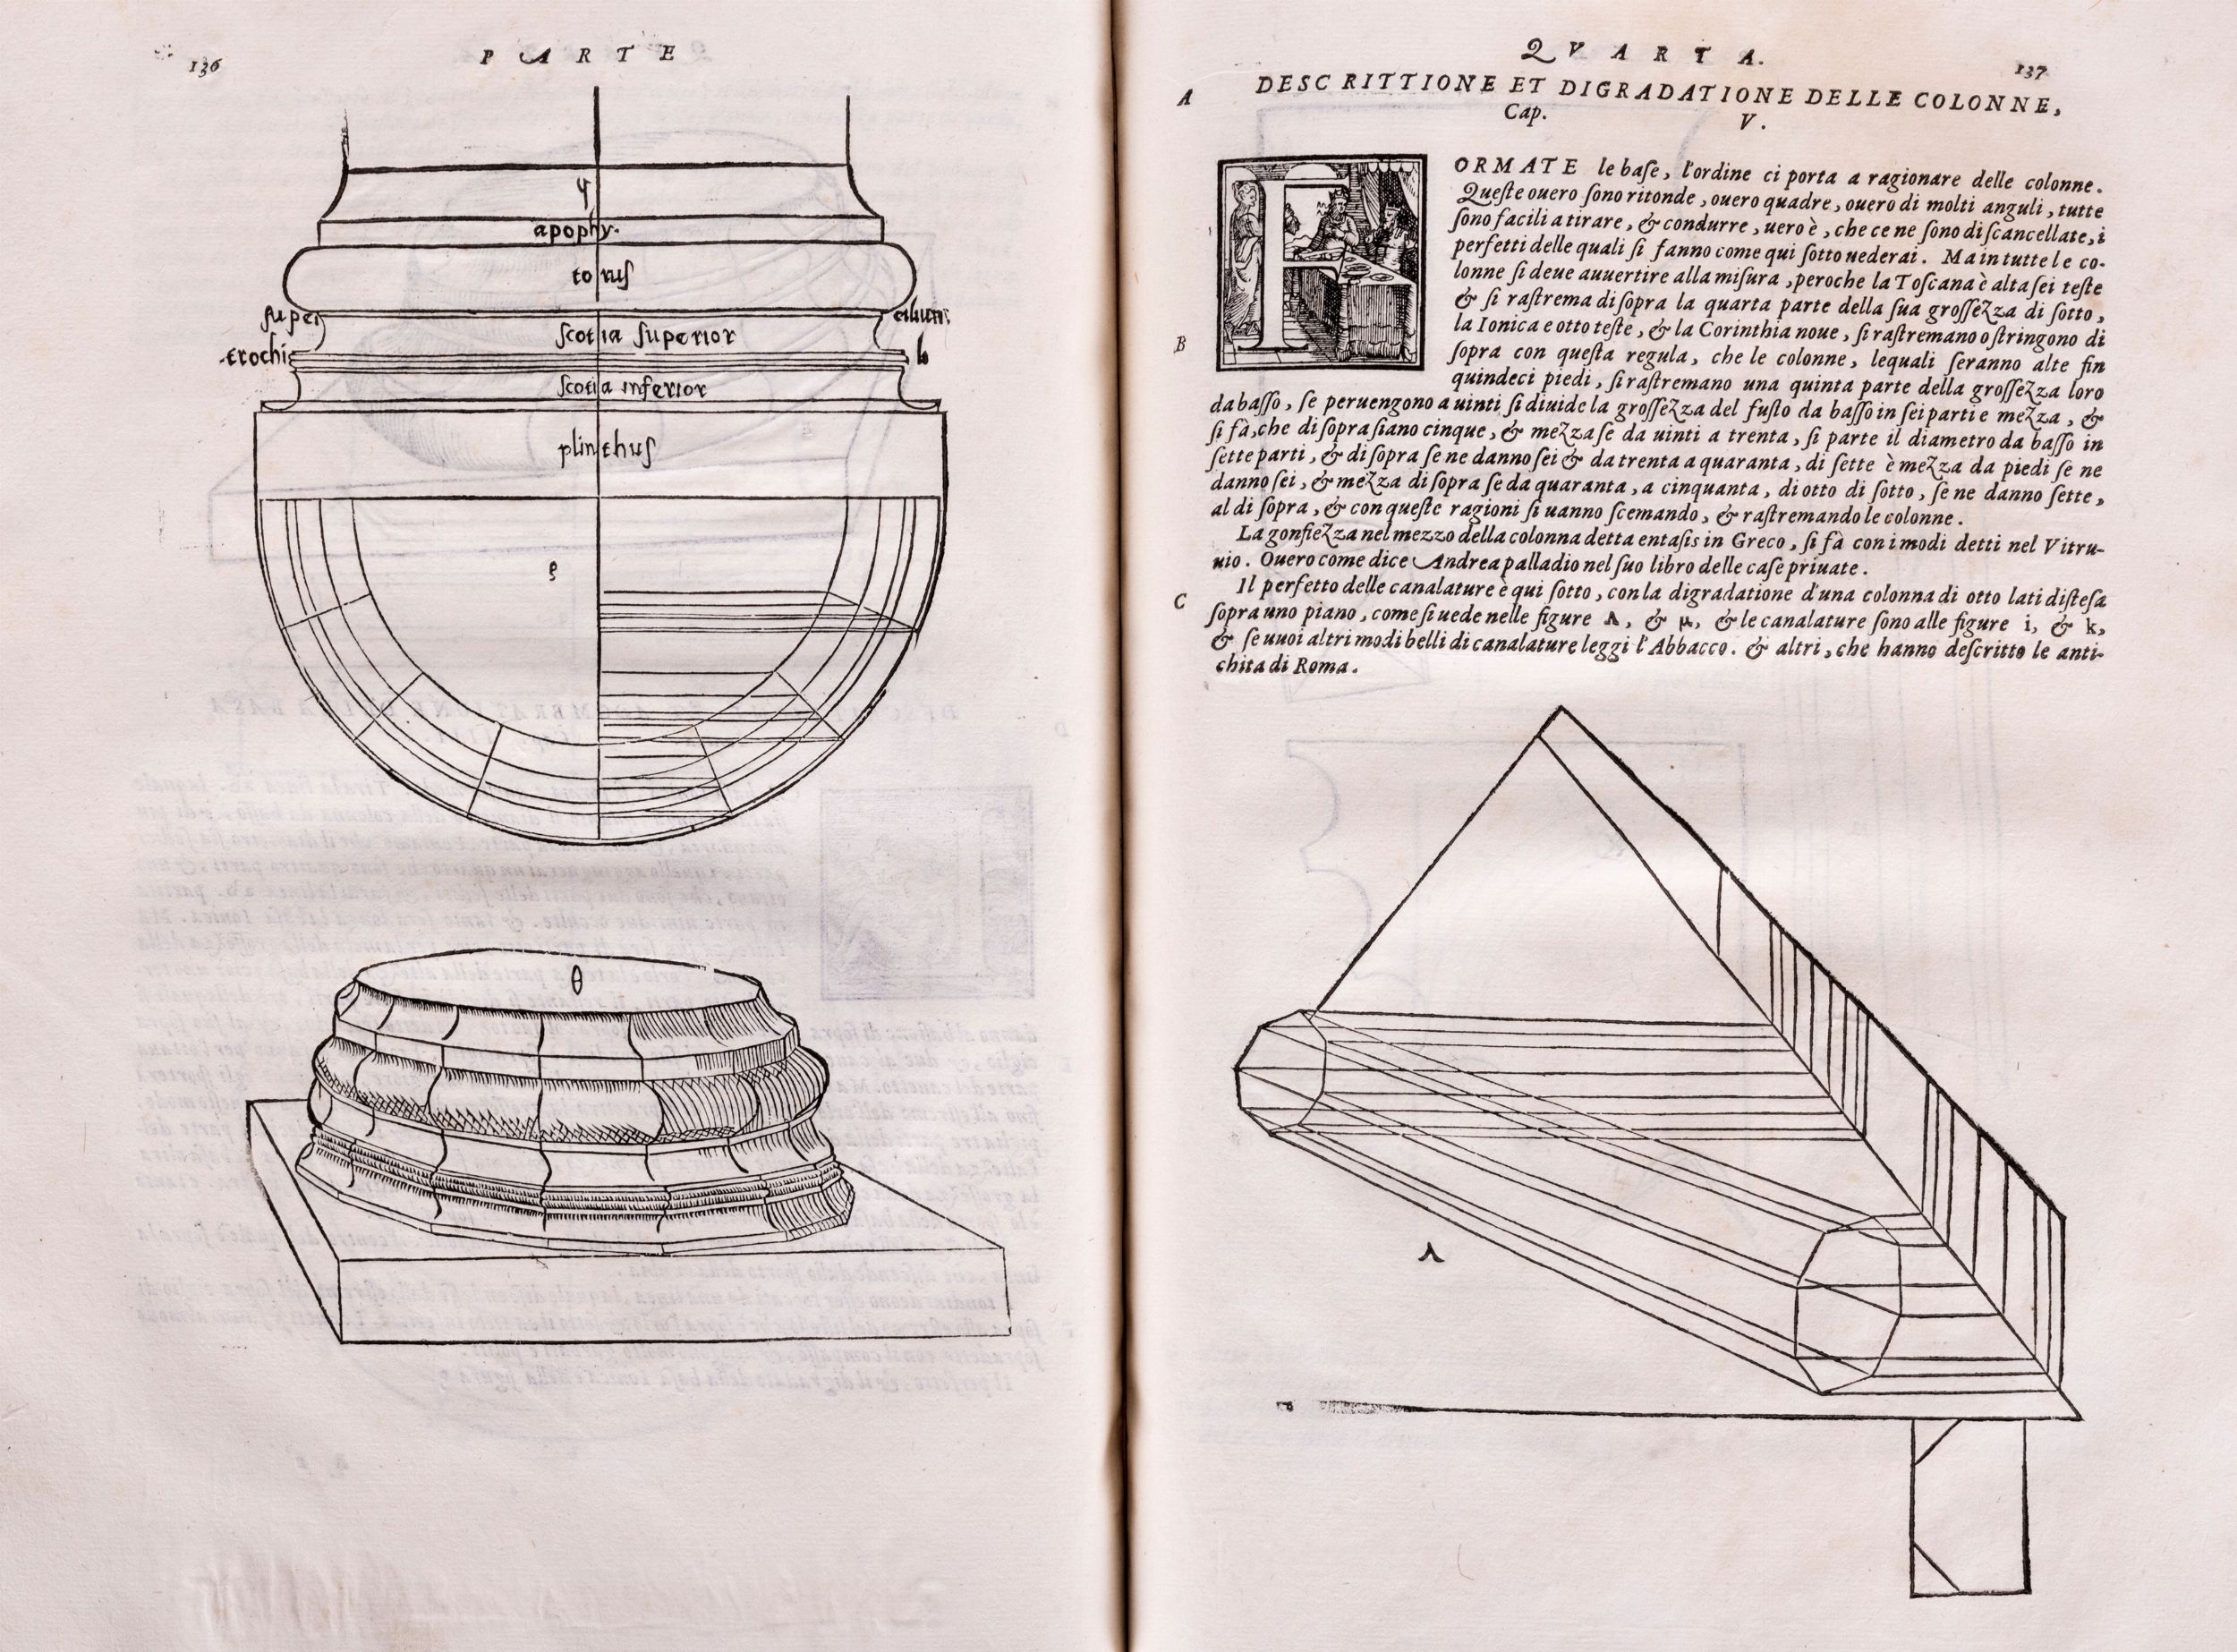 136
PARTE
ψ
apophy.
torus
superciliums
scotia superior
trochilo
scotia inferior
plinthus
ρ
θ
QVARTA.
137
A
DESCRITTIONE ET DIGRADATIONE DELLE COLONNE,
Cap. V.
ORMATE le baſe, l'ordine ci porta a ragionare delle colonne.
Queſte ouero ſono ritonde, ouero quadre, ouero di molti anguli, tutte
ſono facili a tirare, & condurre, uero è, che ce ne ſono di ſcancellate, i
perfetti delle quali ſi fanno come qui ſotto uederai. Ma in tutte le co-
lonne ſi deue auuertire alla miſura, peroche la Toſcana è alta ſei teſte
& ſi raſtrema di ſopra la quarta parte della ſua groſſezza di ſotto,
la Ionica e otto teſte, & la Corinthia noue, ſi raſtremano o ſtringono di
B
ſopra con queſta regula, che le colonne, lequali ſeranno alte fin
quindeci piedi, ſi raſtremano una quinta parte della groſſezza loro
da baſſo, ſe peruengono a uinti ſi diuide la groſſezza del fuſto da baſſo in ſei parti e mezza, &
ſi fà, che di ſopra ſiano cinque, & mezza ſe da uinti a trenta, ſi parte il diametro da baſſo in
ſette parti, & di ſopra ſe ne danno ſei & da trenta a quaranta, di ſette è mezza da piedi ſe ne
danno ſei, & mezza di ſopra ſe da quaranta, a cinquanta, di otto di ſotto, ſe ne danno ſette,
al di ſopra, & con queſte ragioni ſi uanno ſcemando, & raſtremando le colonne.
La gonfiezza nel mezzo della colonna detta entaſis in Greco, ſi fà con i modi detti nel Vitru-
uio. Ouero come dice Andrea palladio nel ſuo libro delle caſe priuate.
C
Il perfetto delle canalature è qui ſotto, con la digradatione d'una colonna di otto lati diſteſa
ſopra uno piano, come ſi uede nelle figure λ, & μ, & le canalature ſono alle figure i, & k,
& ſe uuoi altri modi belli di canalature leggi l'Abbacco. & altri, che hanno deſcritto le anti-
chita di Roma.
λ